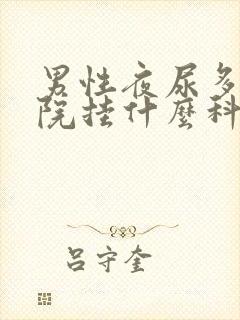 男性夜尿多
院挂什麼科
吕守奎